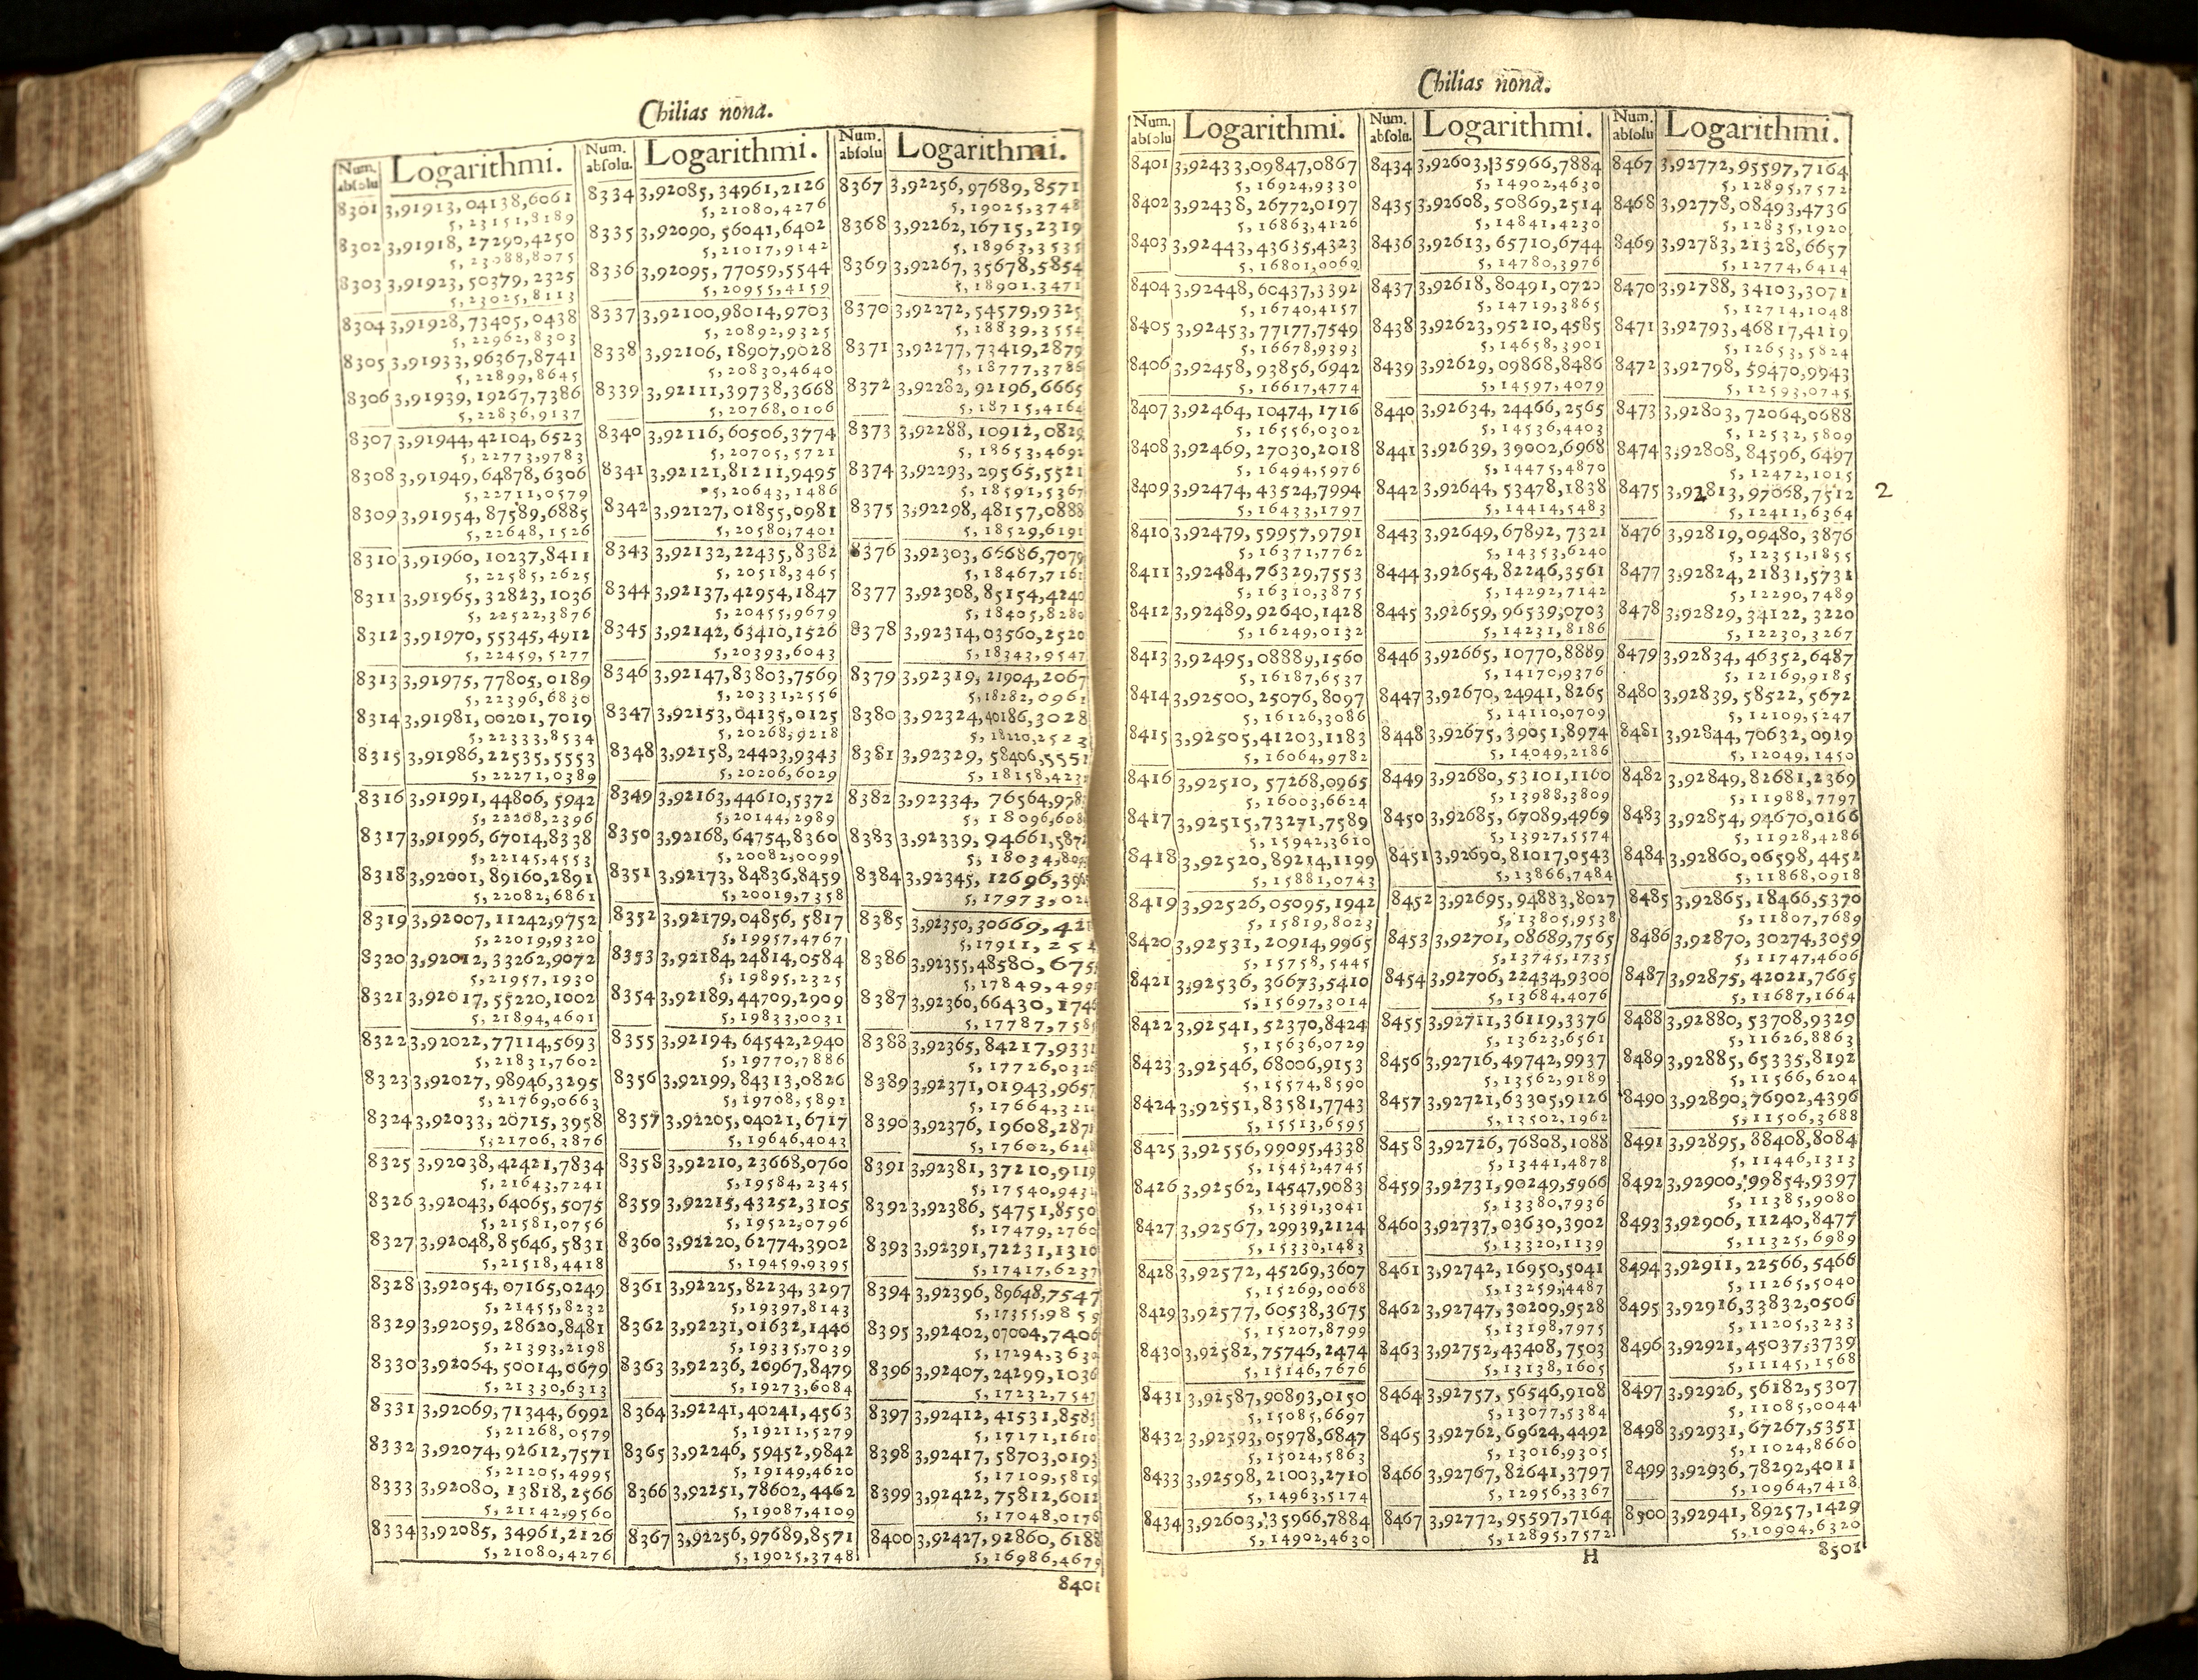 Chilias nona.
Num. absolu
Logarithmi.
8301 3,91913,04138,6061
5,23151,8189
8302 3,91918,27290,4250
5,23088,8075
8303 3,91923,50379,2325
5,23025,8113
8304 3,91928,73405,0438
5,22962,8303
8305 3,91933,96367,8741
5,22899,8645
8306 3,91939,19267,7386
5,22836,9137
8307 3,91944,42104,6523
5,22773,9783
8308 3,91949,64878,6306
5,22711,0579
8309 3,91954,87589,6885
5,22648,1526
8310 3,91960,10237,8411
5,22585,2625
8311 3,91965,32823,1036
5,22522,3876
8312 3,91970,55345,4912
5,22459,5277
8313 3,91975,77805,0189
5,22396,6830
8314 3,91981,00201,7019
5,22333,8534
8315 3,91986,22535,5553
5,22271,0389
8316 3,91991,44806,5942
5,22208,2396
8317 3,91996,67014,8338
5,22145,4553
8318 3,92001,89160,2891
5,22082,6861
8319 3,92007,11242,9752
5,22019,9320
8320 3,92012,33262,9072
5,21957,1930
8321 3,92017,55220,1002
5,21894,4691
8322 3,92022,77114,5693
5,21831,7602
8323 3,92027,98946,3295
5,21769,0663
8324 3,92033,20715,3958
5,21706,3876
8325 3,92038,42421,7834
5,21643,7241
8326 3,92043,64065,5075
5,21581,0756
8327 3,92048,85646,5831
5,21518,4418
8328 3,92054,07165,0249
5,21455,8232
8329 3,92059,28620,8481
5,21393,2198
8330 3,92064,50014,0679
5,21330,6313
8331 3,92069,71344,6992
5,21268,0579
8332 3,92074,92612,7571
5,21205,4995
8333 3,92080,13818,2566
5,21142,9560
8334 3,92085,34961,2126
5,21080,4276
Num. absolu.
Logarithmi.
8334 3,92085,34961,2126
5,21080,4276
8335 3,92090,56041,6402
5,21017,9142
8336 3,92095,77059,5544
5,20955,4159
8337 3,92100,98014,9703
5,20892,9325
8338 3,92106,18907,9028
5,20830,4640
8339 3,92111,39738,3668
5,20768,0106
8340 3,92116,60506,3774
5,20705,5721
8341 3,92121,81211,9495
5,20643,1486
8342 3,92127,01855,0981
5,20580,7401
8343 3,92132,22435,8382
5,20518,3465
8344 3,92137,42954,1847
5,20455,9679
8345 3,92142,63410,1526
5,20393,6043
8346 3,92147,83803,7569
5,20331,2556
8347 3,92153,04135,0125
5,20268,9218
8348 3,92158,24403,9343
5,20206,6029
8349 3,92163,44610,5372
5,20144,2989
8350 3,92168,64754,8360
5,20082,0099
8351 3,92173,84836,8459
5,20019,7358
8352 3,92179,04856,5817
5,19957,4767
8353 3,92184,24814,0584
5,19895,2325
8354 3,92189,44709,2909
5,19833,0031
8355 3,92194,64542,2940
5,19770,7886
8356 3,92199,84313,0826
5,19708,5891
8357 3,92205,04021,6717
5,19646,4043
8358 3,92210,23668,0760
5,19584,2345
8359 3,92215,43252,3105
5,19522,0796
8360 3,92220,62774,3902
5,19459,9395
8361 3,92225,82234,3297
5,19397,8143
8362 3,92231,01632,1440
5,19335,7039
8363 3,92236,20967,8479
5,19273,6084
8364 3,92241,40241,4563
5,19211,5279
8365 3,92246,59452,9842
5,19149,4620
8366 3,92251,78602,4462
5,19087,4109
8367 3,92256,97689,8571
5,19025,3748
Num. absolu
Logarithmi.
8367 3,92256,97689,8571
5,19025,3748
8368 3,92262,16715,2319
5,18963,3535
8369 3,92267,35678,5854
5,18901,3471
8370 3,92272,54579,9325
5,18839,3554
8371 3,92277,73419,2879
5,18777,3786
8372 3,92282,92196,6665
5,18715,4164
8373 3,92288,10912,0829
5,18653,4692
8374 3,92293,29565,5521
5,18591,5367
8375 3,92298,48157,0888
5,18529,6191
8376 3,92303,66686,7079
5,18467,7161
8377 3,92308,85154,4240
5,18405,8280
8378 3,92314,03560,2520
5,18343,9547
8379 3,92319,21904,2067
5,18282,0961
8380 3,92324,40186,3028
5,18220,2523
8381 3,92329,58406,5551
5,18158,423
8382 3,92334,76564,978
5,18096,608
8383 3,92339,94661,587
5,18034,80
8384 3,92345,12696,39
5,17973,02
8385 3,92350,30669,42
5,17911,25
8386 3,92355,48580,675
5,17849,499
8387 3,92360,66430,174
5,17787,758
8388 3,92365,84217,933
5,17726,032
8389 3,92371,01943,9657
5,17664,321
8390 3,92376,19608,287
5,17602,624
8391 3,92381,37210,9119
5,17540,943
8392 3,92386,54751,8550
5,17479,2760
8393 3,92391,72231,1310
5,17417,6237
8394 3,92396,89648,7547
5,17355,9859
8395 3,92402,07004,7406
5,17294,3630
8396 3,92407,24299,1036
5,17232,7547
8397 3,92412,41531,8583
5,17171,1610
8398 3,92417,58703,0193
5,17109,5819
8399 3,92422,75812,6012
5,17048,0176
8400 3,92427,92860,6188
5,16986,4679
8401
Chilias nona.
Num. absolu
Logarithmi.
8401 3,92433,09847,0867
5,16924,9330
8402 3,92438,26772,0197
5,16863,4126
8403 3,92443,43635,4323
5,16801,9069
8404 3,92448,60437,3392
5,16740,4157
8405 3,92453,77177,7549
5,16678,9393
8406 3,92458,93856,6942
5,16617,4774
8407 3,92464,10474,1716
5,16556,0302
8408 3,92469,27030,2018
5,16494,5976
8409 3,92474,43524,7994
5,16433,1797
8410 3,92479,59957,9791
5,16371,7762
8411 3,92484,76329,7553
5,16310,3875
8412 3,92489,92640,1428
5,16249,0132
8413 3,92495,08889,1560
5,16187,6537
8414 3,92500,25076,8097
5,16126,3086
8415 3,92505,41203,1183
5,16064,9782
8416 3,92510,57268,0965
5,16003,6624
8417 3,92515,73271,7589
5,15942,3610
8418 3,92520,89214,1199
5,15881,0743
8419 3,92526,05095,1942
5,15819,8023
8420 3,92531,20914,9965
5,15758,5445
8421 3,92536,36673,5410
5,15697,3014
8422 3,92541,52370,8424
5,15636,0729
8423 3,92546,68006,9153
5,15574,8590
8424 3,92551,83581,7743
5,15513,6595
8425 3,92556,99095,4338
5,15452,4745
8426 3,92562,14547,9083
5,15391,3041
8427 3,92567,29939,2124
5,15330,1483
8428 3,92572,45269,3607
5,15269,0068
8429 3,92577,60538,3675
5,15207,8799
8430 3,92582,75746,2474
5,15146,7676
8431 3,92587,90893,0150
5,15085,6697
8432 3,92593,05978,6847
5,15024,5863
8433 3,92598,21003,2710
5,14963,5174
8434 3,92603,35966,7884
5,14902,4630
Num. absolu.
Logarithmi.
8434 3,92603,35966,7884
5,14902,4630
8435 3,92608,50869,2514
5,14841,4230
8436 3,92613,65710,6744
5,14780,3976
8437 3,92618,80491,0720
5,14719,3865
8438 3,92623,95210,4585
5,14658,3901
8439 3,92629,09868,8486
5,14597,4079
8440 3,92634,24466,2565
5,14536,4403
8441 3,92639,39002,6968
5,14475,4870
8442 3,92644,53478,1838
5,14414,5483
8443 3,92649,67892,7321
5,14353,6240
8444 3,92654,82246,3561
5,14292,7142
8445 3,92659,96539,0703
5,14231,8186
8446 3,92665,10770,8889
5,14170,9376
8447 3,92670,24941,8265
5,14110,0709
8448 3,92675,39051,8974
5,14049,2186
8449 3,92680,53101,1160
5,13988,3809
8450 3,92685,67089,4969
5,13927,5574
8451 3,92690,81017,0543
5,13866,7484
8452 3,92695,94883,8027
5,13805,9538
8453 3,92701,08689,7565
5,13745,1735
8454 3,92706,22434,9300
5,13684,4076
8455 3,92711,36119,3376
5,13623,6561
8456 3,92716,49742,9937
5,13562,9189
8457 3,92721,63305,9126
5,13502,1962
8458 3,92726,76808,1088
5,13441,4878
8459 3,92731,90249,5966
5,13380,7936
8460 3,92737,03630,3902
5,13320,1139
8461 3,92742,16950,5041
5,13259,4487
8462 3,92747,30209,9528
5,13198,7975
8463 3,92752,43408,7503
5,13138,1605
8464 3,92757,56546,9108
5,13077,5384
8465 3,92762,69624,4492
5,13016,9305
8466 3,92767,82641,3797
5,12956,3367
8467 3,92772,95597,7164
5,12895,7572
Num. absolu
Logarithmi.
8467 3,92772,95597,7164
5,12895,7572
8468 3,92778,08493,4736
5,12835,1920
8469 3,92783,21328,6657
5,12774,6414
8470 3,92788,34103,3071
5,12714,1048
8471 3,92793,46817,4119
5,12653,5824
8472 3,92798,59470,9943
5,12593,0745
8473 3,92803,72064,0688
5,12532,5809
8474 3,92808,84596,6497
5,12472,1015
8475 3,92813,97068,7512
2
5,12411,6364
8476 3,92819,09480,3876
5,12351,1855
8477 3,92824,21831,5731
5,12290,7489
8478 3,92829,34122,3220
5,12230,3267
8479 3,92834,46352,6487
5,12169,9185
8480 3,92839,58522,5672
5,12109,5247
8481 3,92844,70632,0919
5,12049,1450
8482 3,92849,82681,2369
5,11988,7797
8483 3,92854,94670,0166
5,11928,4286
8484 3,92860,06598,4452
5,11868,0918
8485 3,92865,18466,5370
5,11807,7689
8486 3,92870,30274,3059
5,11747,4606
8487 3,92875,42021,7665
5,11687,1664
8488 3,92880,53708,9329
5,11626,8863
8489 3,92885,65335,8192
5,11566,6204
8490 3,92890,76902,4396
5,11506,3688
8491 3,92895,88408,8084
5,11446,1313
8492 3,92900,99854,9397
5,11385,9080
8493 3,92906,11240,8477
5,11325,6989
8494 3,92911,22566,5466
5,11265,5040
8495 3,92916,33832,0506
5,11205,3233
8496 3,92921,45037,3739
5,11145,1568
8497 3,92926,56182,5307
5,11085,0044
8498 3,92931,67267,5351
5,11024,8660
8499 3,92936,78292,4011
5,10964,7418
8500 3,92941,89257,1429
5,10904,6320
H
8501